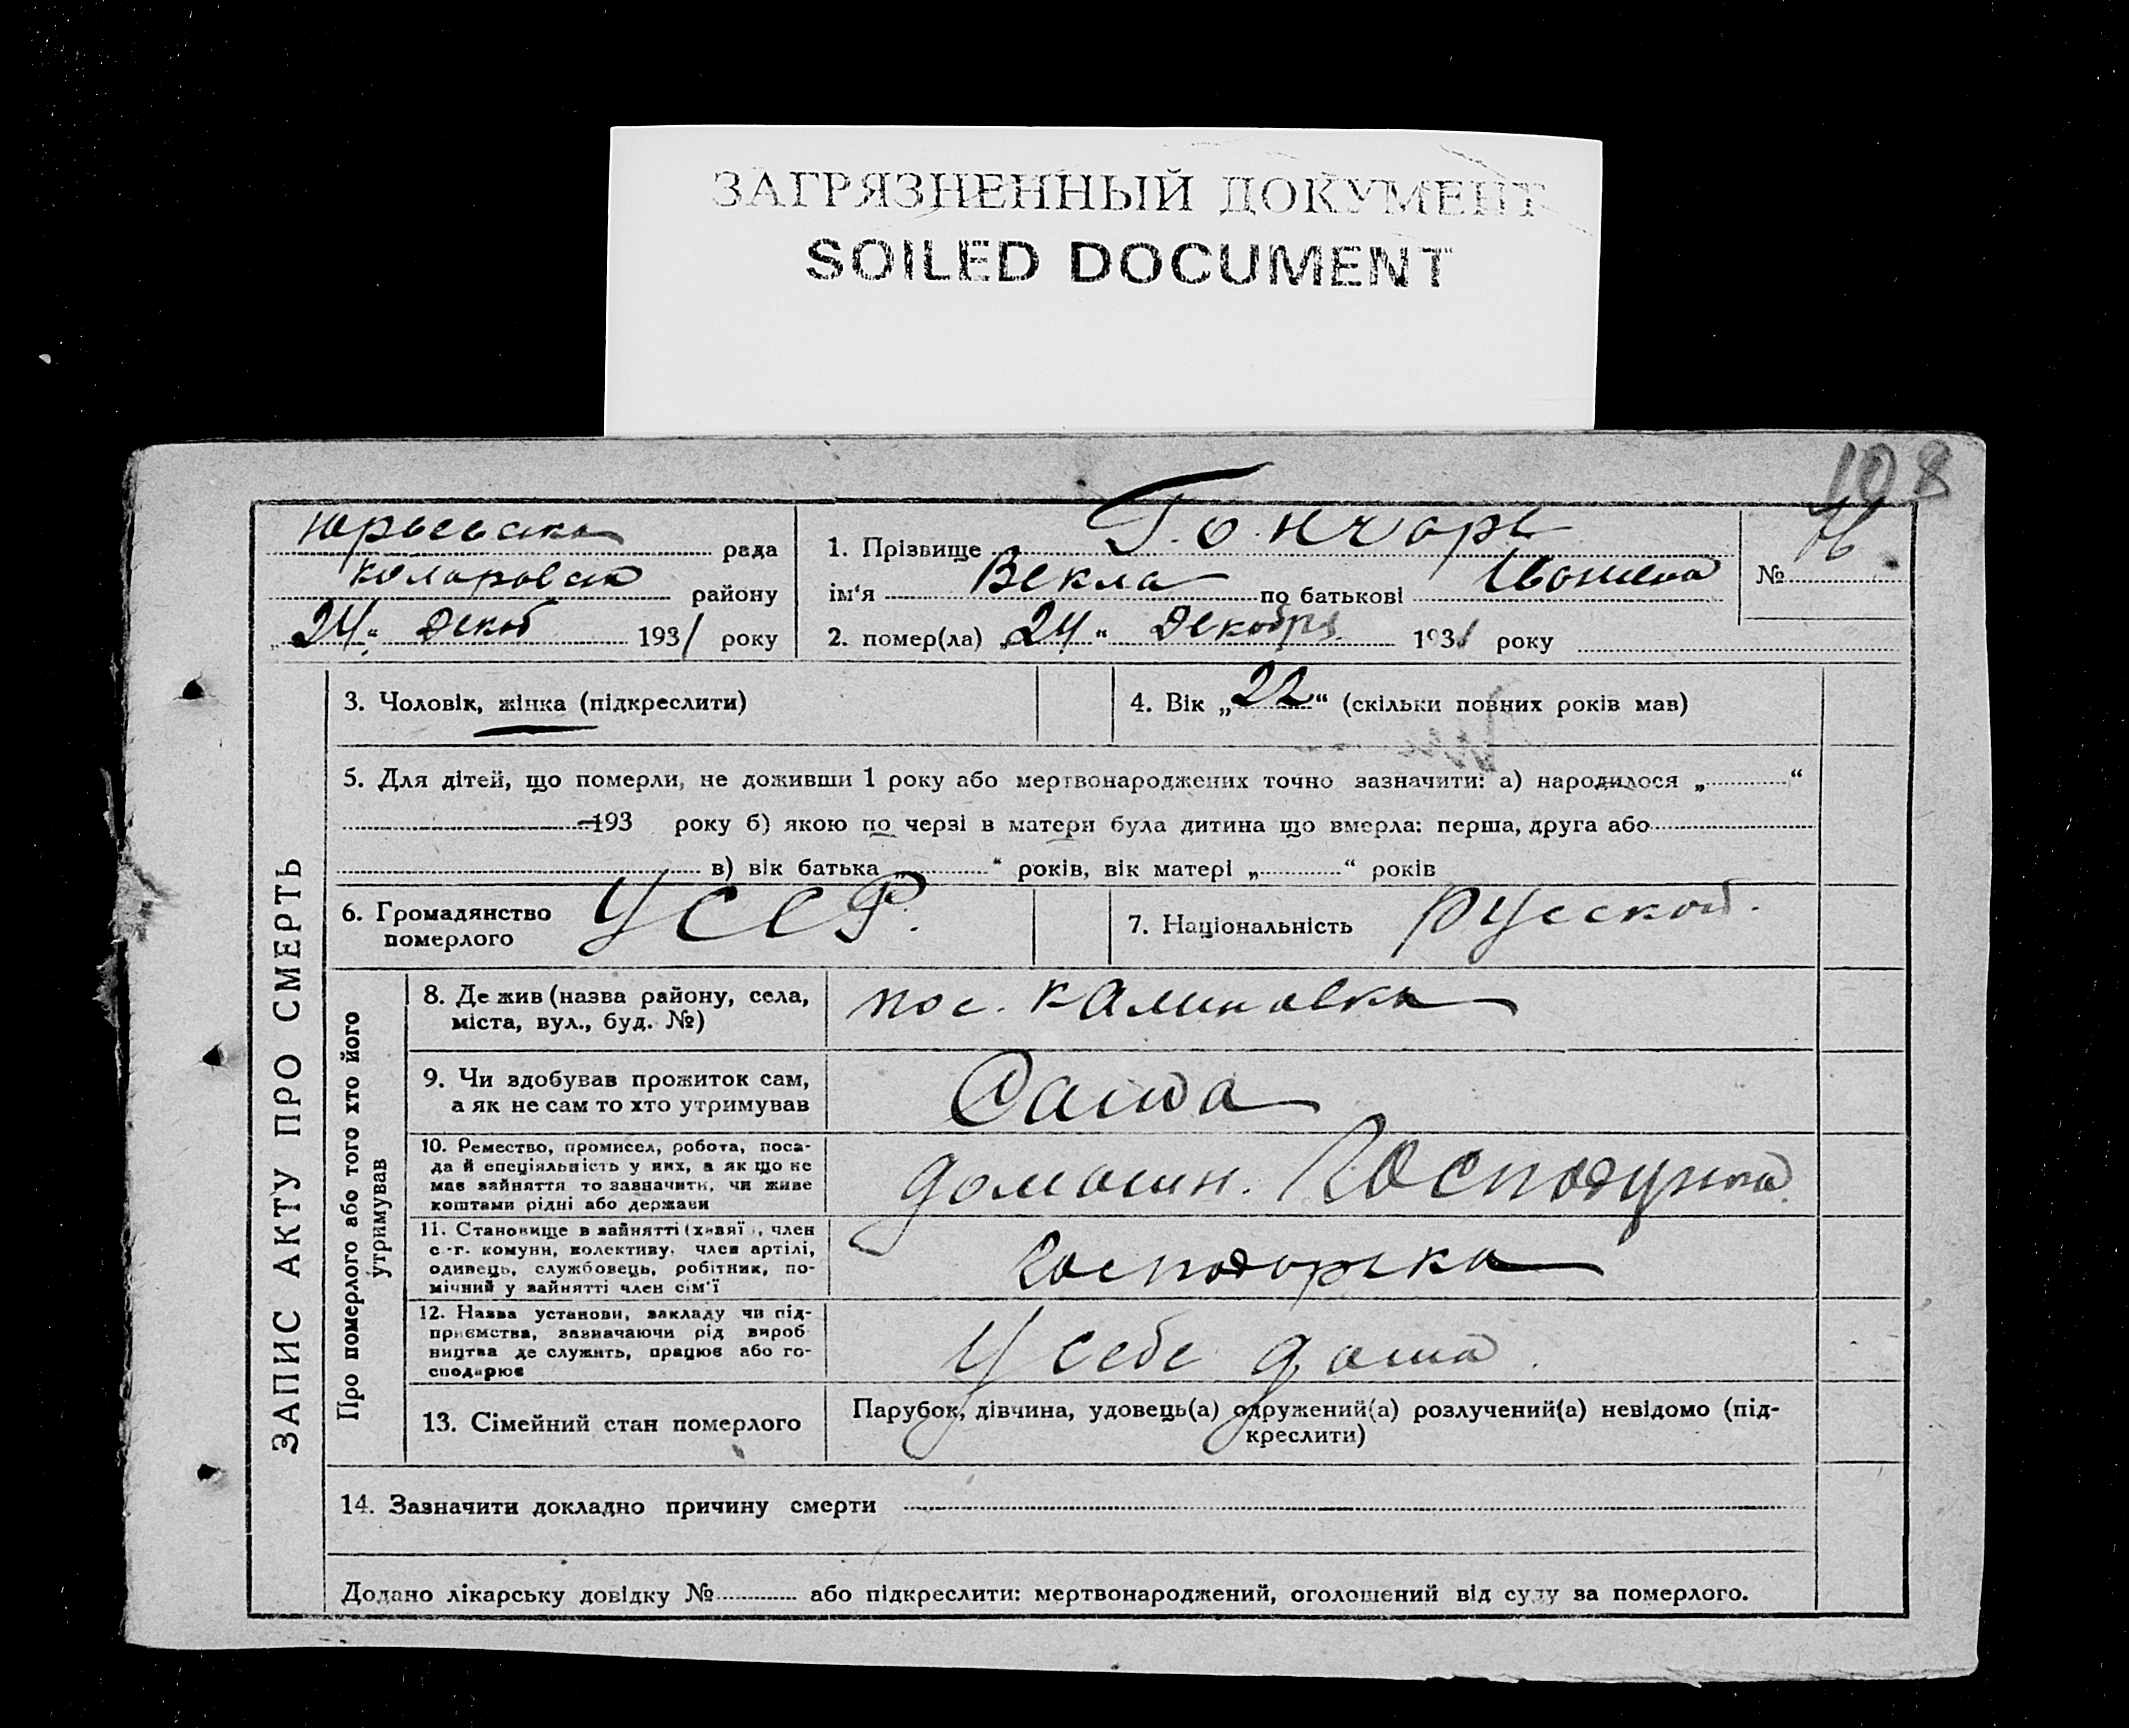 ЗАГРЯЗНЕННЫЙ ДОКУМЕНТ
SOILED DOCUMENT
108
Юрьевска рада
Коларовск району
„24“ Декаб 1931 року
1. Прізвище Гончарь
ім'я Векла по батькові Ивановна
2. помер(ла) „24“ Декабря 1931 року
№
ЗАПИС АКТУ ПРО СМЕРТЬ
3. Чоловік, жінка (підкреслити)
4. Вік „22“ (скільки повних років мав)
5. Для дітей, що померли, не доживши 1 року або мертвонароджених точно зазначити: а) народилося „ “
193 року б) якою по черзі в матери була дитина що вмерла: перша, друга або
в) вік батька „ “ років, вік матері „ “ років
6. Громадянство померлого УССР.
7. Національність Русской.
Про померлого або того хто його утримував
8. Де жив (назва району, села,
міста, вул., буд. №)
пос. Калиновка
9. Чи здобував прожиток сам,
а як не сам то хто утримував
Сама
10. Ремество, промисел, робота, поса-
да й спеціяльність у них, а як що не
має зайняття то зазначити, чи живе
коштами рідні або держави
домашн.
11. Становище в зайнятті (хазяїн, член
с.-г. комуни, колективу, член артілі,
одинець, службовець, робітник, по-
мічний у зайнятті член сім'ї
господарка
12. Назва установи, закладу чи під-
приємства, зазначаючи рід вироб
ництва де служить, працює або го-
сподарює
У себе дома.
13. Сімейний стан померлого
Парубок, дівчина, удовець(а) одружений(а) розлучений(а) невідомо (під-
креслити)
14. Зазначити докладно причину смерти
Додано лікарську довідку № або підкреслити: мертвонароджений, оголошений від суду за померлого.